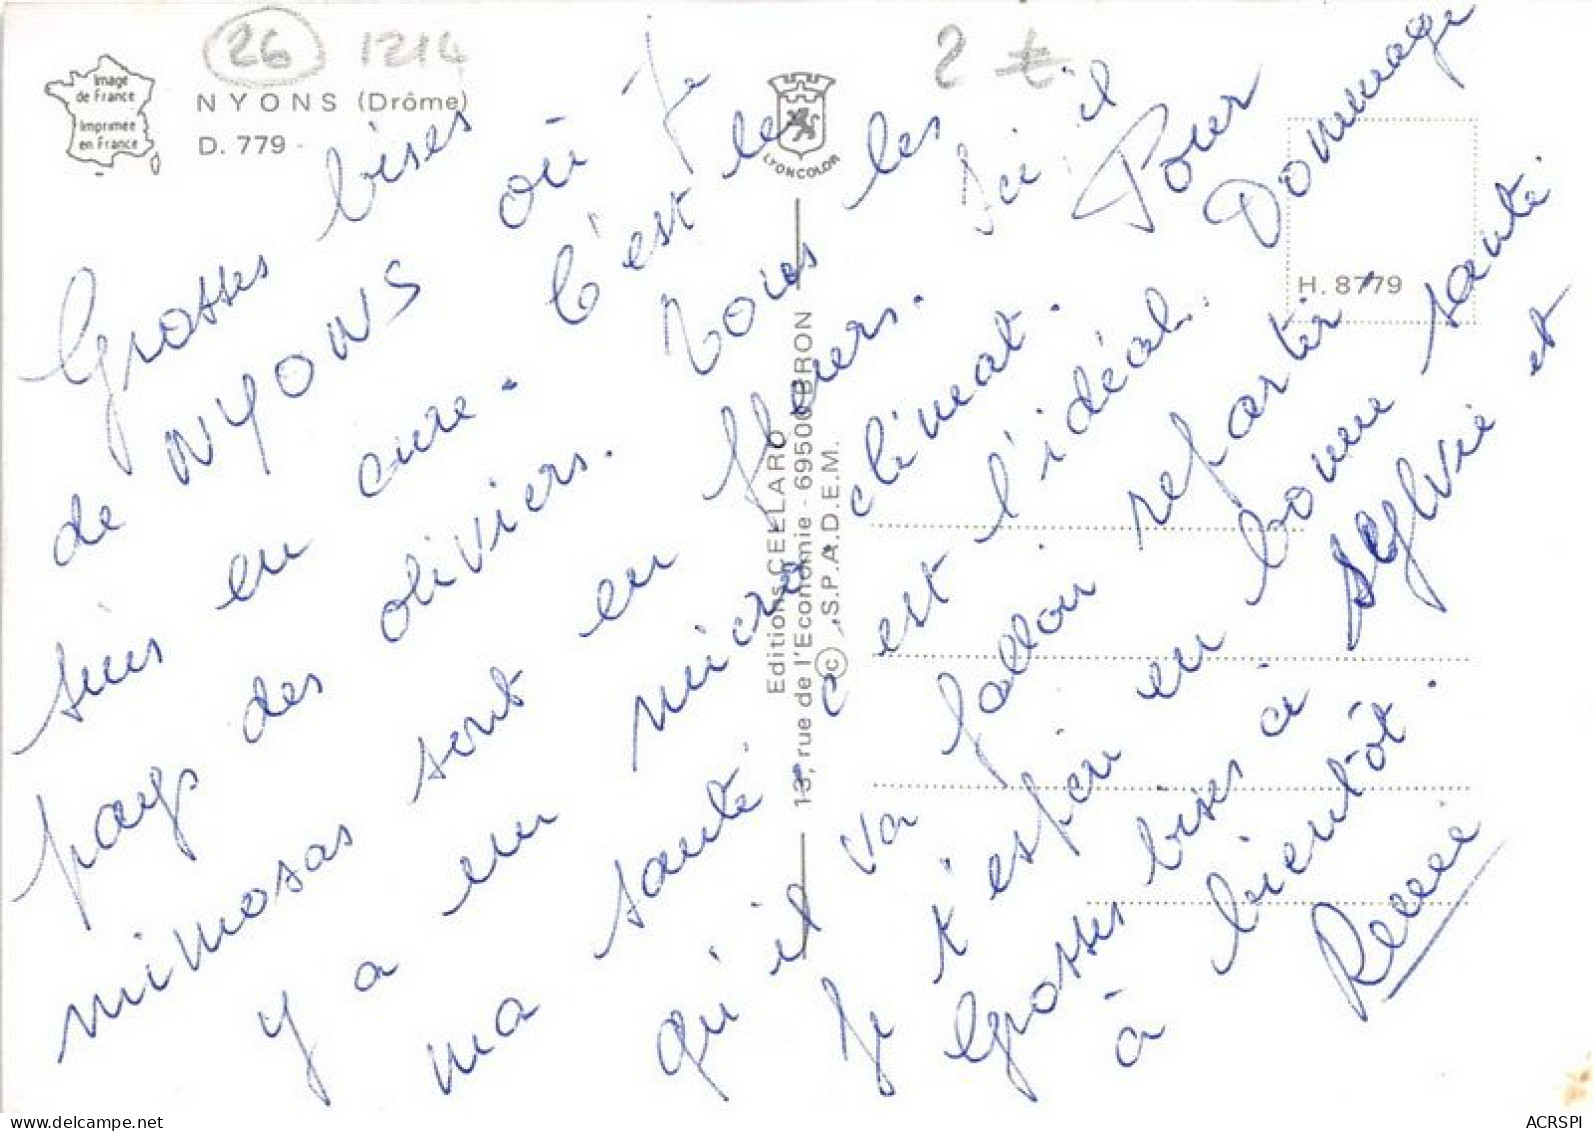 26 1214
Image
de France
Imprimée
en France
NYONS (Drôme)
D. 779
LYONCOLOR
2 €
H. 8779
Editions CELLARD
13, rue de l'Economie - 69500 BRON
(c) S.P.A.D.E.M.
Grosses bises
de NYONS où Je
suis en cure. C'est le
pays des oliviers. Tous les
mimosas sont en fleurs. Ici il
y a un micro climat. Pour
ma santé c'est l'idéal. Dommage
qu'il va falloir repartir.
Je t'espère en bonne santé
Grosses bises à Sylvie et
à bientôt.
Renée
www.delcampe.net
ACRSPI